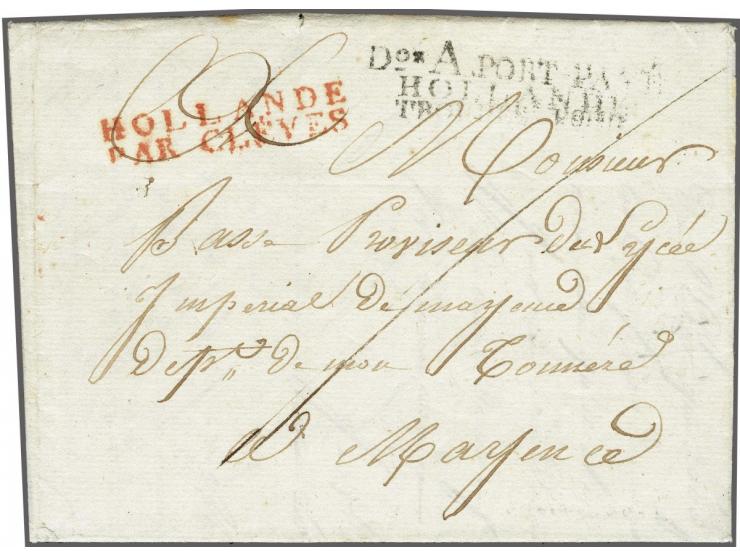 HOLLANDE
PAR CLEVES
Dos A. PORT-PAYÉ
HOLLANDE
Monsieur
Basse Proviseur du Lycée
Imperial de mayence
Dept de mon Tonnére
a Mayence